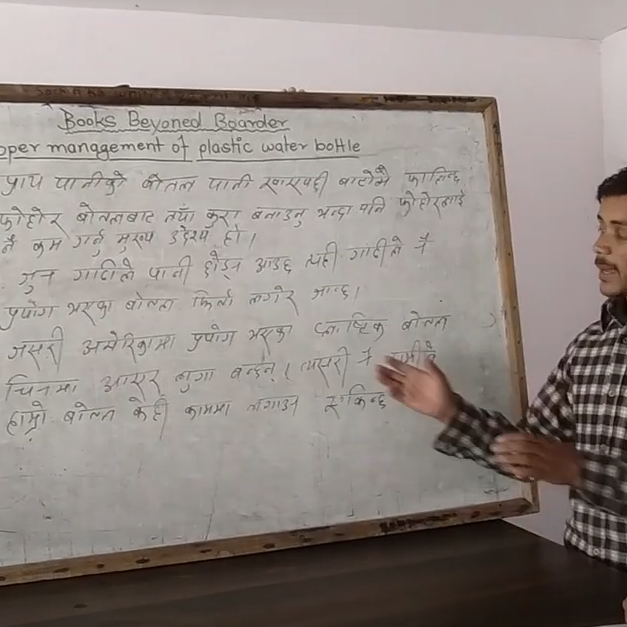 Books Beyoned Boarder
oper management of plastic water bottle
प्राय पानीको बोतल पानी खासपछी बाटोमै फालिन्छ
फोहोर बोतलबाट नयाँ कुरा बनाउनु भन्दा पनि फोहोरलाई
नै कम गर्नु मुख्य उद्देश्य हो।
जुन गाडीले पानी छोड्न आउछ त्यही गाडीले नै
प्रयोग भएका बोतल फिर्ता लगेर जान्छ।
जसरी अमेरिकामा प्रयोग भएका प्लाष्टिक बोतल
चिनमा आएर लुगा बन्छन्। त्यसरी नै हामीले
हाम्रो बोतल केही काममा लगाउन सकिन्छ